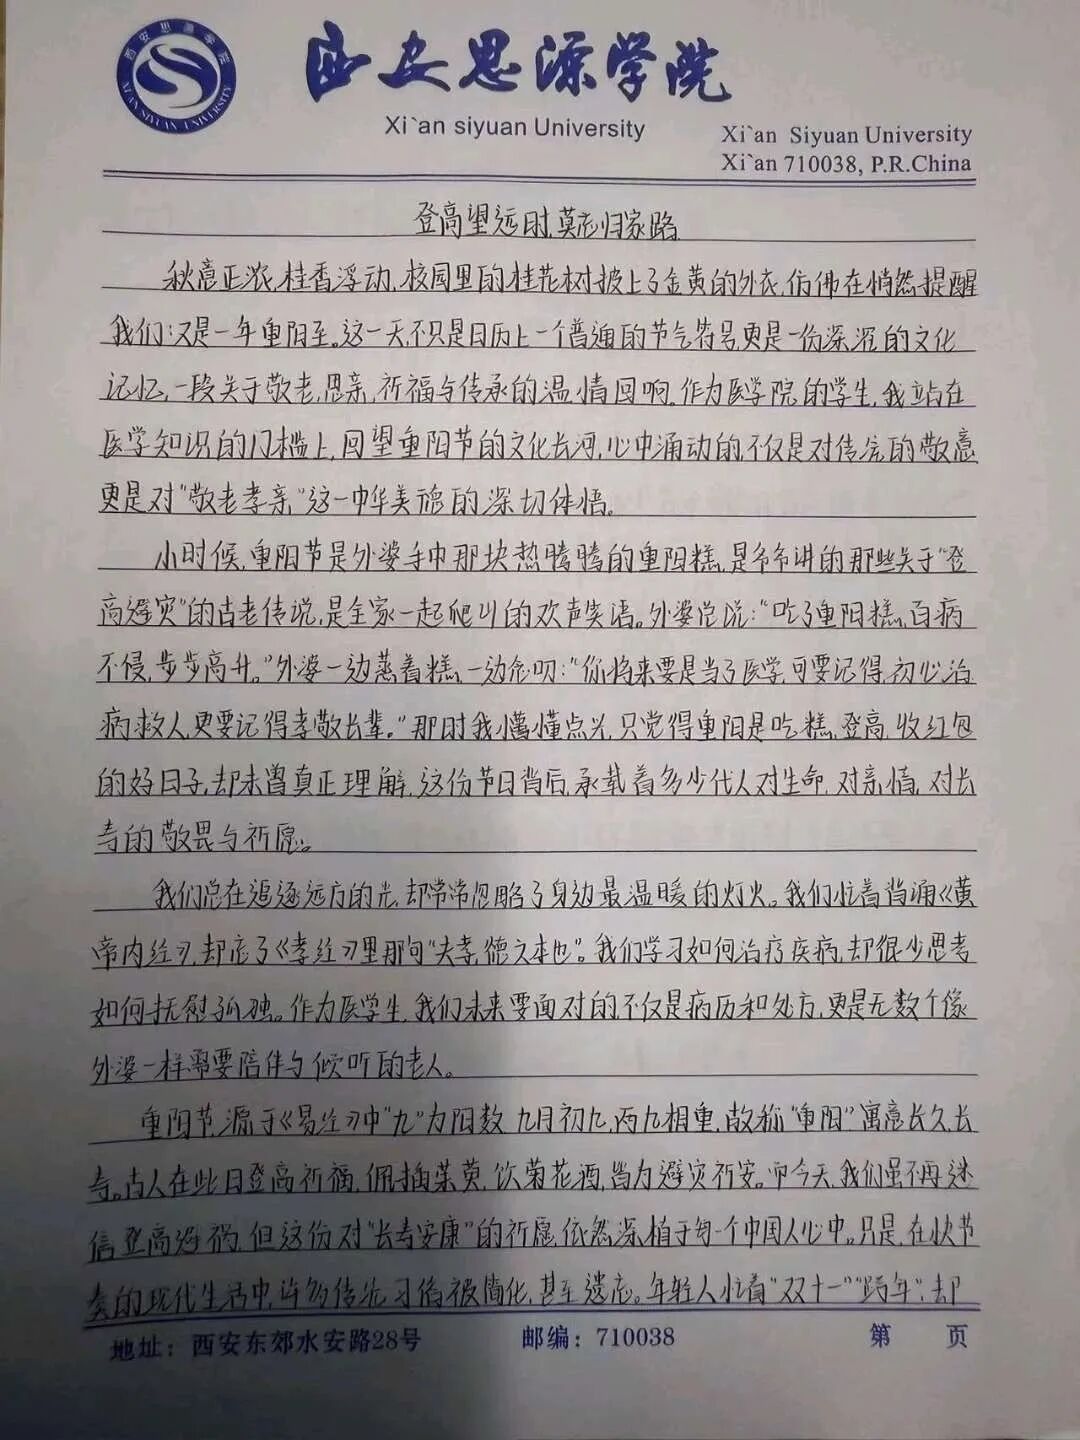 西安思源学院
XI'AN SIYUAN UNIVERSITY
西安思源学院
Xi`an siyuan University
Xi`an Siyuan University
Xi`an 710038, P.R.China
登高望远时,莫忘归家路
秋意正浓,桂香浮动,校园里的桂花树披上了金黄的外衣,仿佛在悄然提醒
我们:又是一年重阳至。这一天,不只是日历上一个普通的节气符号,更是一份深沉的文化
记忆,一段关于敬老,思亲,祈福与传承的温情回响。作为医学院的学生,我站在
医学知识的门槛上,回望重阳节的文化长河,心中涌动的,不仅是对传统的敬意
更是对"敬老孝亲"这一中华美德的深切体悟。
小时候,重阳节是外婆手中那块热腾腾的重阳糕,是爷爷讲的那些关于"登
高避灾"的古老传说,是全家一起爬山的欢声笑语。外婆总说:"吃了重阳糕,百病
不侵,步步高升。"外婆一边蒸着糕,一边念叨:"你将来要是当了医学,可要记得,初心,治
病救人,更要记得孝敬长辈。"那时我懵懂点头,只觉得重阳是吃糕,登高,收红包
的好日子,却未曾真正理解,这份节日背后,承载着多少代人对生命,对亲情,对长
寿的敬畏与祈愿。
我们总在追逐远方的光,却常常忽略了身边最温暖的灯火。我们忙着背诵《黄
帝内经》,却忘了《孝经》里那句"夫孝,德之本也"。我们学习如何治疗疾病,却很少思考
如何抚慰孤独。作为医学生,我们未来要面对的,不仅是病历和处方,更是无数个像
外婆一样需要陪伴与倾听的老人。
重阳节,源于《易经》中"九"为阳数,九月初九,两九相重,故称"重阳"寓意长久,长
寿。古人在此日登高祈福,佩插茱萸,饮菊花酒,皆为避灾祈安。而今天,我们虽不再迷
信登高避祸,但这份对"长寿安康"的祈愿,依然深植于每一个中国人心中。只是,在快节
奏的现代生活中,许多传统习俗被简化,甚至遗忘。年轻人忙着"双十一""跨年",却
地址:西安东郊水安路28号
邮编:710038
第 页